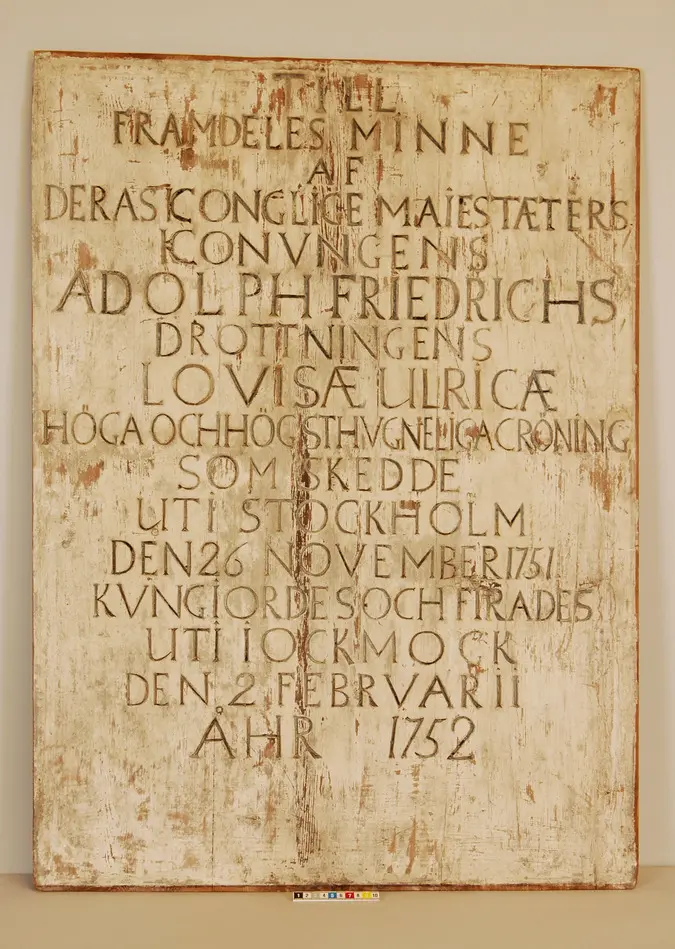 TILL
FRAMDELES MINNE
AF
DERAS KONGLIGE MAIESTÆTERS
KONVNGENS
ADOLPH FRIEDRICHS
DROTTNINGENS
LOVISÆ ULRICÆ
HÖGA OCH HÖGSTHVGNELIGA CRÖNING
SOM SKEDDE
UTI STOCKHOLM
DEN 26 NOVEMBER 1751
KVNGIORDES OCH FIRADES
UTI IOCKMOCK
DEN 2 FEBRVARII
ÅHR 1752